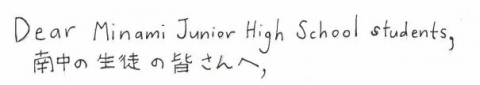 Dear Minami Junior High School students,
南中の生徒の皆さんへ,